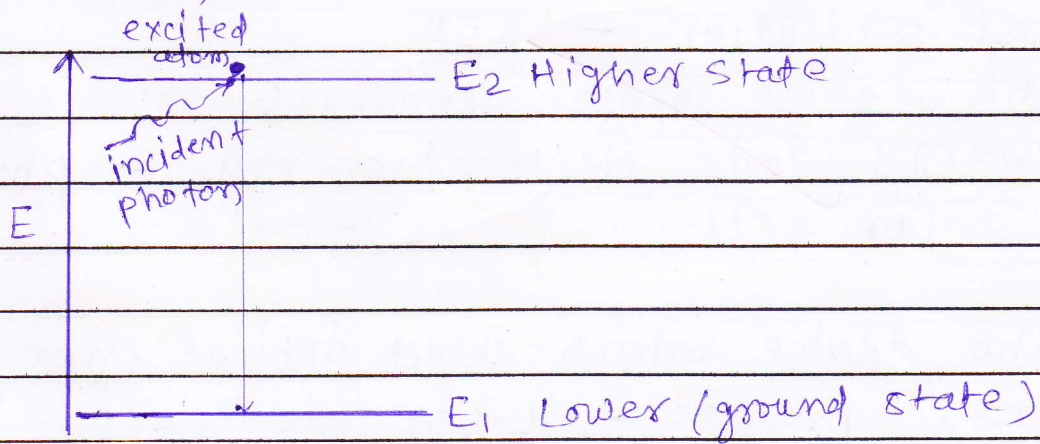 excited
atom
E2 Higher State
incident
photon
E
E1 Lower (ground state)